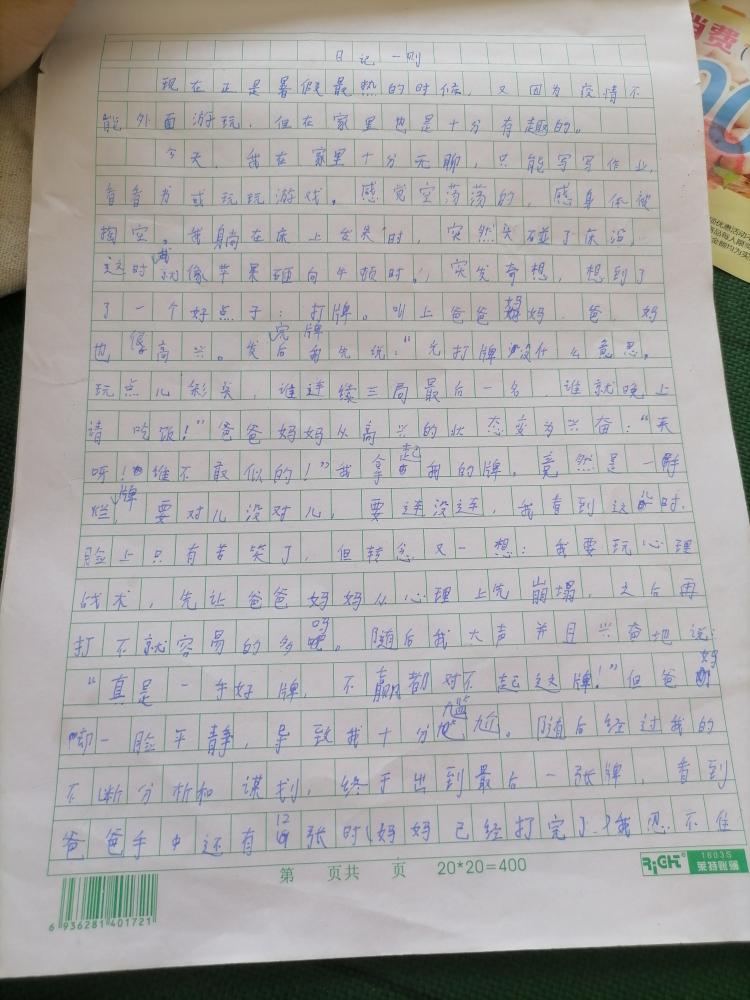 日记一则
现在正是暑假最热的时候，又因为疫情不
能外面游玩，但在家里也是十分有趣的。
今天，我在家里十分无聊，只能写写作业，
看看书或玩玩游戏。感觉空荡荡的，感身体被
掏空。我躺在床上发呆时，突然头碰了床沿，
这时我就像苹果砸向牛顿时，突发奇想，想到了
了一个好点子：打牌。叫上爸爸妈妈，爸、妈
也很高兴。发完牌后我先说：“光打牌没什么意思。
玩点儿彩头，谁连续三局最后一名，谁就晚上
请吃饭！”爸爸妈妈从高兴的状态变为兴奋：“来
呀！谁不敢似的！”我拿起我的牌，竟然是一鲜
烂牌，要对儿没对儿，要连没连，我看到这时，
脸上只有苦笑了，但转念又一想：我要玩心理
战术，先让爸爸妈妈从心理上先崩塌，之后再
打不就容易的多吗。随后我大声并且兴奋地说：
“真是一手好牌，不赢都对不起这牌！”但爸妈
却一脸平静，导致我十分尴尬。随后经过我的
不断分析和谋划，终于出到最后一张牌，看到
爸爸手中还有12张时（妈妈已经打完了）我忍不住
第 页共 页 20*20=400
RiCH 1603S
6 936281 401721
消费